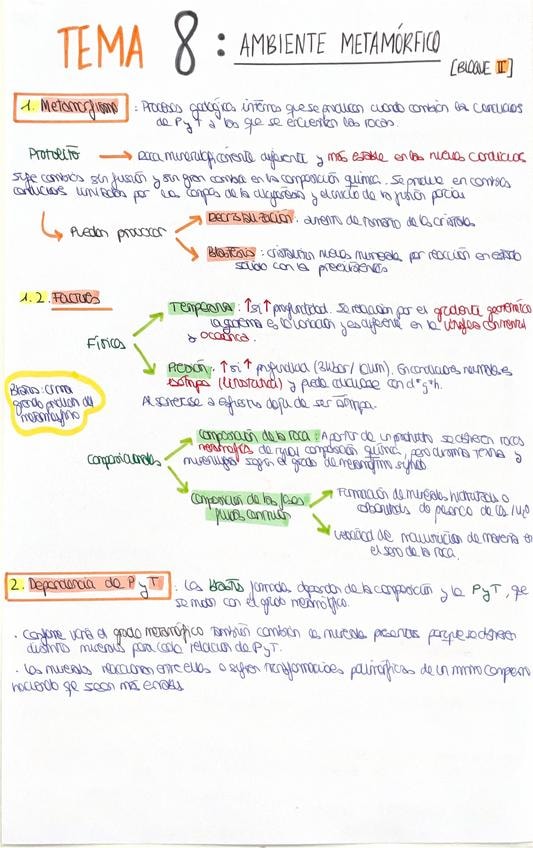 TEMA 8: AMBIENTE METAMÓRFICO
[BLOQUE II]
1. Metamorfismo: Procesos geológicos internos que se producen cuando cambian las condiciones
de P y T a las que se encuentran las rocas.
Protolito → roca mineralógicamente diferente y más estable en las nuevas condiciones
Sufre cambios sin fusión y sin gran cambio en la composición química. Se produce en
condiciones limitadas por los campos de la diagénesis y el inicio de la fusión parcial
→ Pueden provocar → Recristalización: aumento de tamaño de los cristales
→ Blastesis: cristalizan nuevos minerales por reacción en estado
sólido con los preexistentes
1.2. Factores
Físicos → Temperatura: ↑ si ↑ profundidad. Se relacionan por el gradiente geotérmico
y es diferente en la litosfera continental
y oceánica.
→ Presión: ↑ si ↑ profundidad (3kbar/10km). En condiciones normales es
isótropa (litostática) y puede calcularse con d*g*h.
Al someterse a esfuerzos deja de ser isótropa.
Blastos: cristal
grande producto del
metamorfismo
Composicionales → Composición de la roca: A partir de un protolito se obtienen rocas
metamórficas de igual composición química, pero distinta textura y
mineralogía según el grado de metamorfismo sufrido
→ Composición de las fases
fluidas
→ Formación de minerales hidratados o
carbonatados
→ velocidad de
el seno de la roca.
2. Dependencia de P y T: Los blastos formados dependen de la composición y la P y T, que
se miden con el grado metamórfico.
· Conforme varía el grado metamórfico también cambian los minerales presentes porque se obtienen
distintos minerales para cada relación de P y T.
· Los minerales reaccionan entre ellos o sufren transformaciones polimórficas de un mismo compuesto
haciendo que sean más estables